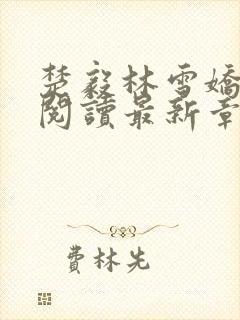 楚毅林雪嬌
閱讀最新章
費林先